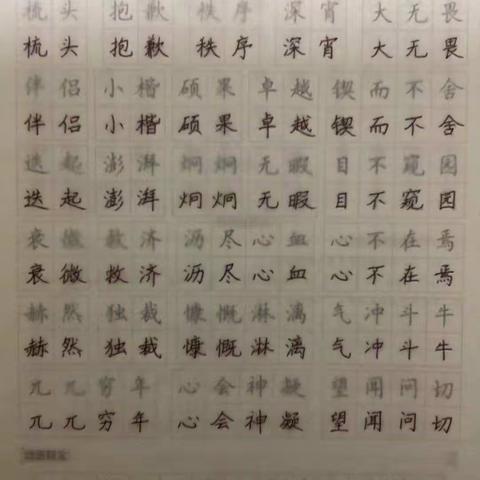 梳头 抱歉 秩序 深宵 大无畏
梳头 抱歉 秩序 深宵 大无畏
伴侣 小楷 硕果 卓越 锲而不舍
伴侣 小楷 硕果 卓越 锲而不舍
迭起 澎湃 炯炯 无暇 目不窥园
迭起 澎湃 炯炯 无暇 目不窥园
衰微 救济 沥尽心血 心不在焉
衰微 救济 沥尽心血 心不在焉
赫然 独裁 慷慨淋漓 气冲斗牛
赫然 独裁 慷慨淋漓 气冲斗牛
兀兀穷年 心会神凝 望闻问切
兀兀穷年 心会神凝 望闻问切